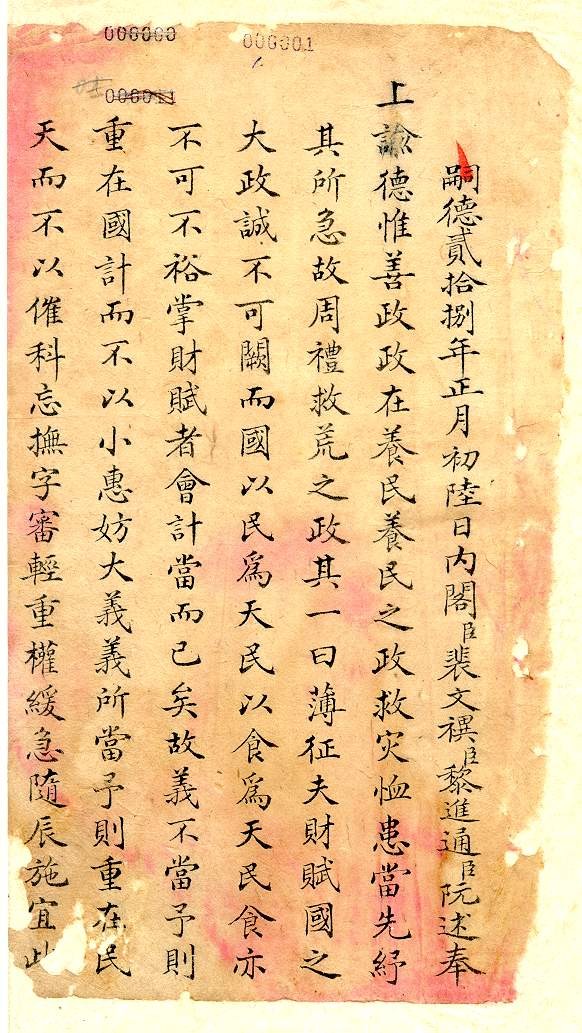 000000
000001
000011
嗣德貳拾捌年正月初陸日内閣臣裴文禩臣黎進通臣阮述奉
上諭德惟善政政在養民養民之政救灾恤患當先紓
其所急故周禮救荒之政其一曰薄征夫財賦國之
大政誠不可闕而國以民爲天民以食爲天民食亦
不可不裕掌財賦者會計當而已矣故義不當予則
重在國計而不以小惠妨大義義所當予則重在民
天而不以催科忘撫字審輕重權緩急隨辰施宜此